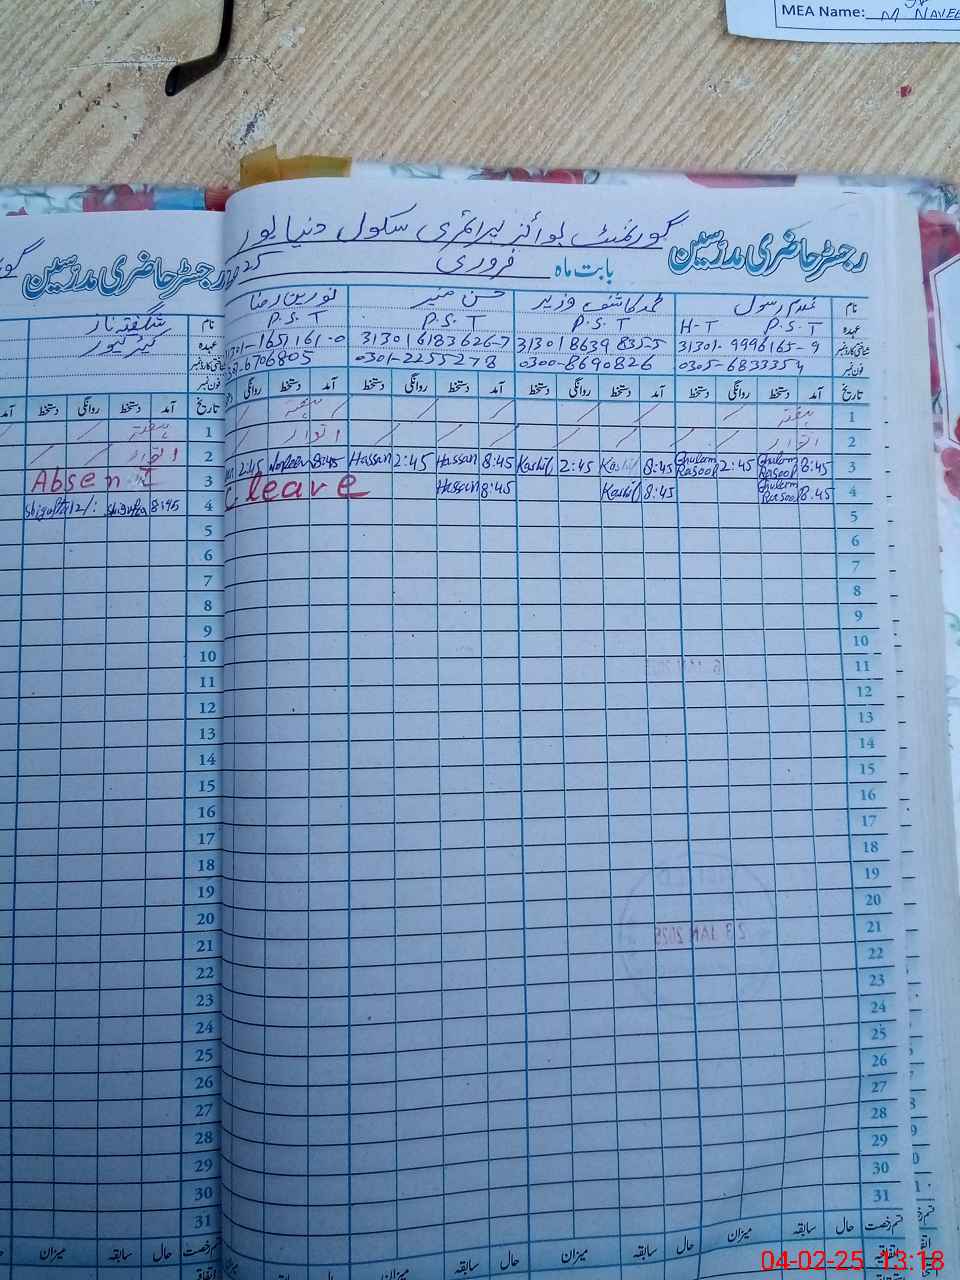 MEA Name: M NAVEE
گورنمنٹ بوائز پرائمری سکول دنیا پور
رجسٹر حاضری مدرسین
بابت ماہ فروری
نام غلام رسول محمد کاشف وزیر حسن منیر نورین رضا
عہدہ P.S.T H-T P.S.T P.S.T P.S.T
شناختی کارڈ نمبر 31301-9996165-9 31301 8639 835-5 31301 6183626-7
فون نمبر 0305-6833354 0300-8690826 0301-2255278 6706805
تاریخ آمد دستخط روانگی دستخط آمد دستخط روانگی دستخط آمد دستخط روانگی دستخط آمد دستخط روانگی
1 ہفتہ ہفتہ
2 اتوار اتوار
3 8:45 Ghulam Rasool 2:45 Ghulam Rasool 8:45 Kashif 2:45 Kashif 8:45 Hassan 2:45 Hassan 8:45 Noreen 2:45
4 8:45 Ghulam Rasool 8:45 Kashif 8:45 Hassan C leave
5
6
7
8
9
10
11
12
13
14
15
16
17
18
19
20
21
22
23
24
25
26
27
28
29
30
31
23 JAN 2025
قسم رخصت حال سابقہ میزان حال سابقہ میزان حال سابقہ میزان
اتفاقیہ
رجسٹر حاضری مدرسین
نام شگفتہ ناز
عہدہ کیئر گیور
شناختی کارڈ نمبر
فون نمبر
تاریخ آمد دستخط روانگی دستخط آمد
1 ہفتہ
2 اتوار
3 Absent
4 8:45 Shigufta 12/: Shigufta
5
6
7
8
9
10
11
12
13
14
15
16
17
18
19
20
21
22
23
24
25
26
27
28
29
30
31
قسم رخصت حال سابقہ میزان حال
اتفاقیہ
04-02-25 13:18